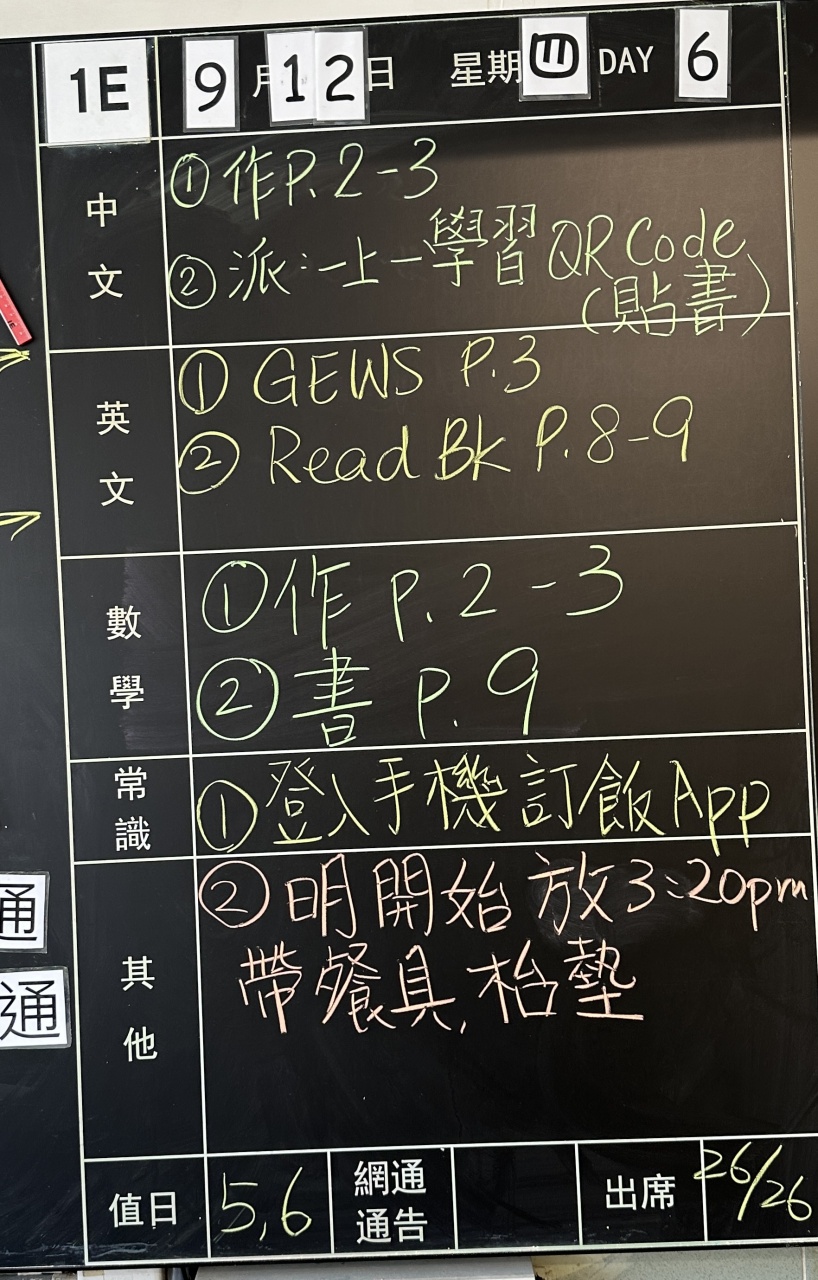 1E 9月12日 星期四 DAY 6
中文
①作P.2-3
②派:一上一學習QR Code
(貼書)
英文
①GEWS P.3
②Read.Bk P.8-9
數學
①作 P.2-3
②書 P.9
常識
①登入手機訂飯App
其他
②明開始放3:20pm
帶餐具,枱墊
值日 5,6 網通通告 出席 26/26
通
通